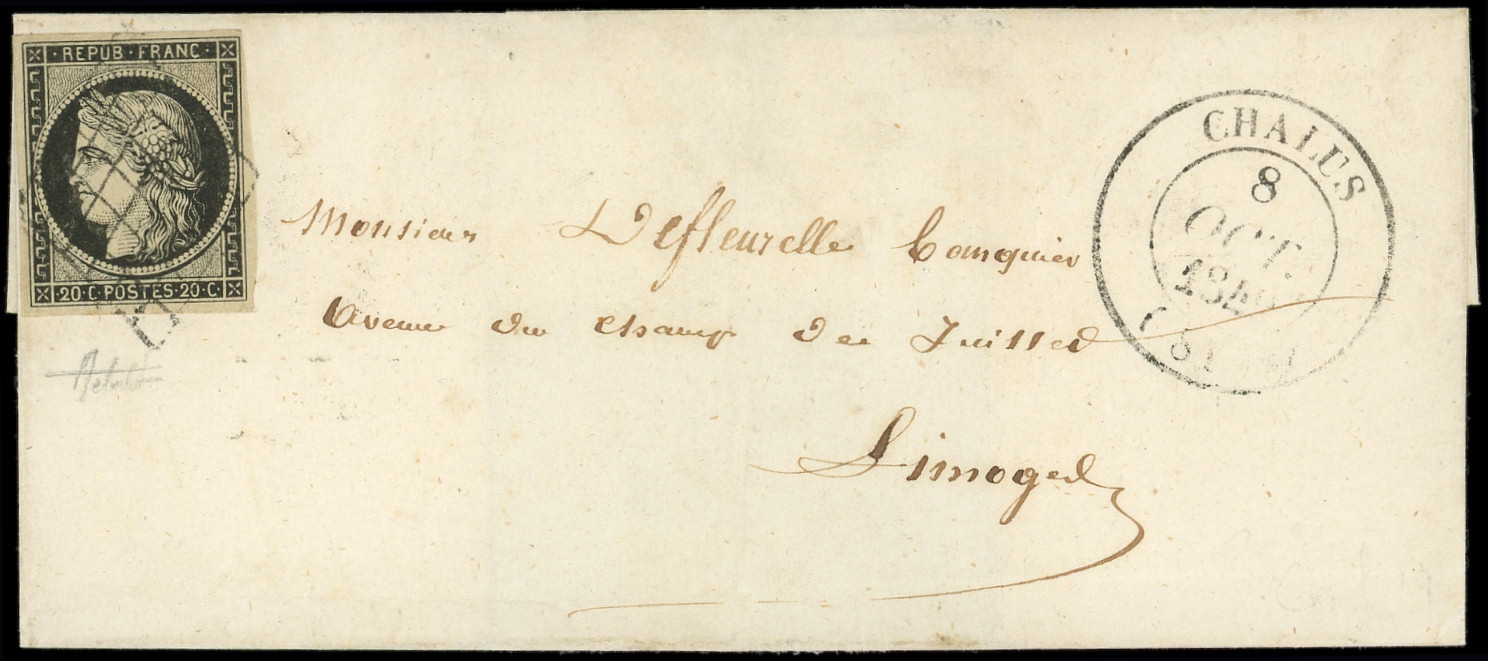 REPUB·FRANC·
·20·C·POSTES·20·C·
CHALUS
8
OCT.
Monsieur Defleurelle banquier
avenue du champ de Juillet
Limoges